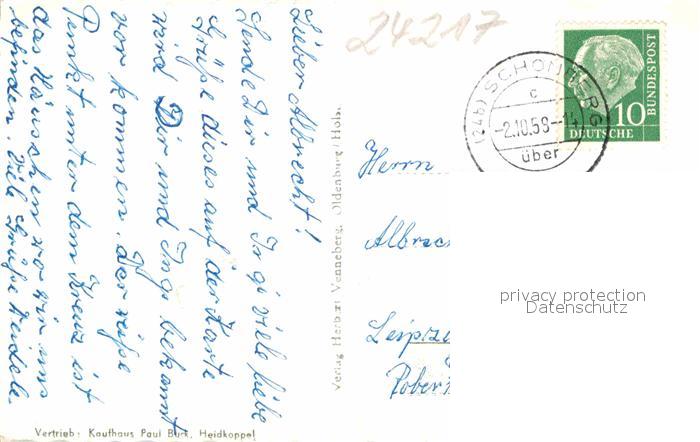 24217
Lieber Albrecht!
Sende Dir und Ingi viele liebe
Grüße dieses auf der Karte
wird Dir und Inge bekannt
vorkommen. Der weiße
Punkt unter dem Kreuz ist
das Häuschen wo wir uns
befinden. Viele Grüße
Vertrieb: Kaufhaus Paul Burk, Heidkoppel
Verlag Herbert Venneberg, Oldenburg/Holst.
(24b) SCHÖNBERG
c
-2.10.58-14
über
10
DEUTSCHE
BUNDESPOST
Herrn
Albrec
Leipzi
Rober
privacy protection
Datenschutz